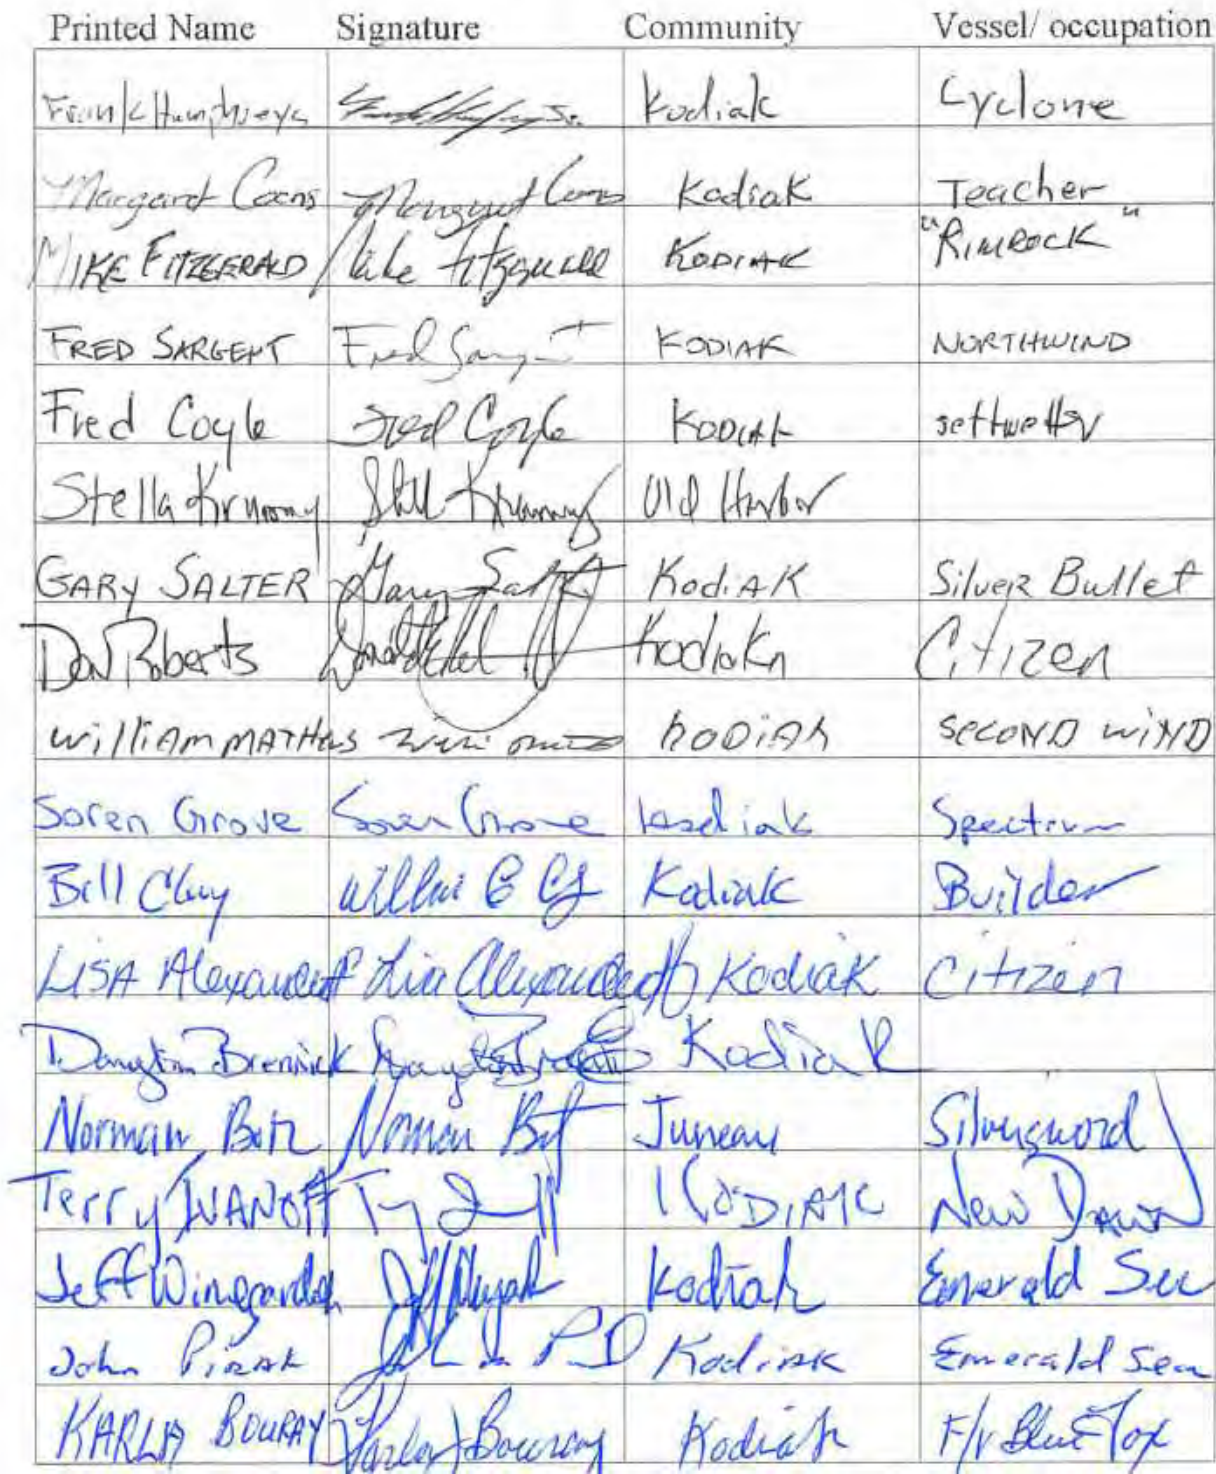 Printed Name Signature Community Vessel/ occupation
Frank Humphreys Kodiak Cyclone
Margaret Coons Margaret Coons Kodiak Teacher
MIKE FITZGERALD Mike Fitzgerald KODIAK "RIMROCK"
FRED SARGENT Fred Sargent KODIAK NORTHWIND
Fred Coyle Fred Coyle KODIAK
Stella Krumrey Stella Krumrey Old Harbor
GARY SALTER Gary Salter KodiAK Silver Bullet
Don Roberts Kodiak Citizen
William MATHEWS KODIAK SECOND WIND
Soren Grove Soren Grove Kodiak Spectrum
Bill Clay Kodiak Builder
LISA Alexander Lisa Alexander Kodiak Citizen
Brennick Kodiak
Norman Norman Juneau Silversword
Terry IVANOFF KODIAK New DAWN
Jeff Kodiak Emerald Sea
John Kodiak Emerald Sea
KARLA BOURAY Karla Bouray Kodiak F/V Blue Fox